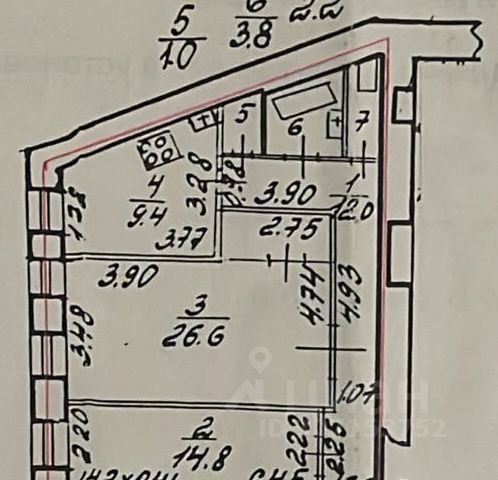 5
1.0
6
3.8
2.2
5
6
7
4
9.4
1.78
3.28
1.78
3.90
1
12.0
3.77
2.75
3.90
3
26.6
4.74
4.93
3.48
1.07
2
14.8
2.20
2.22
2.25
ЦИАН